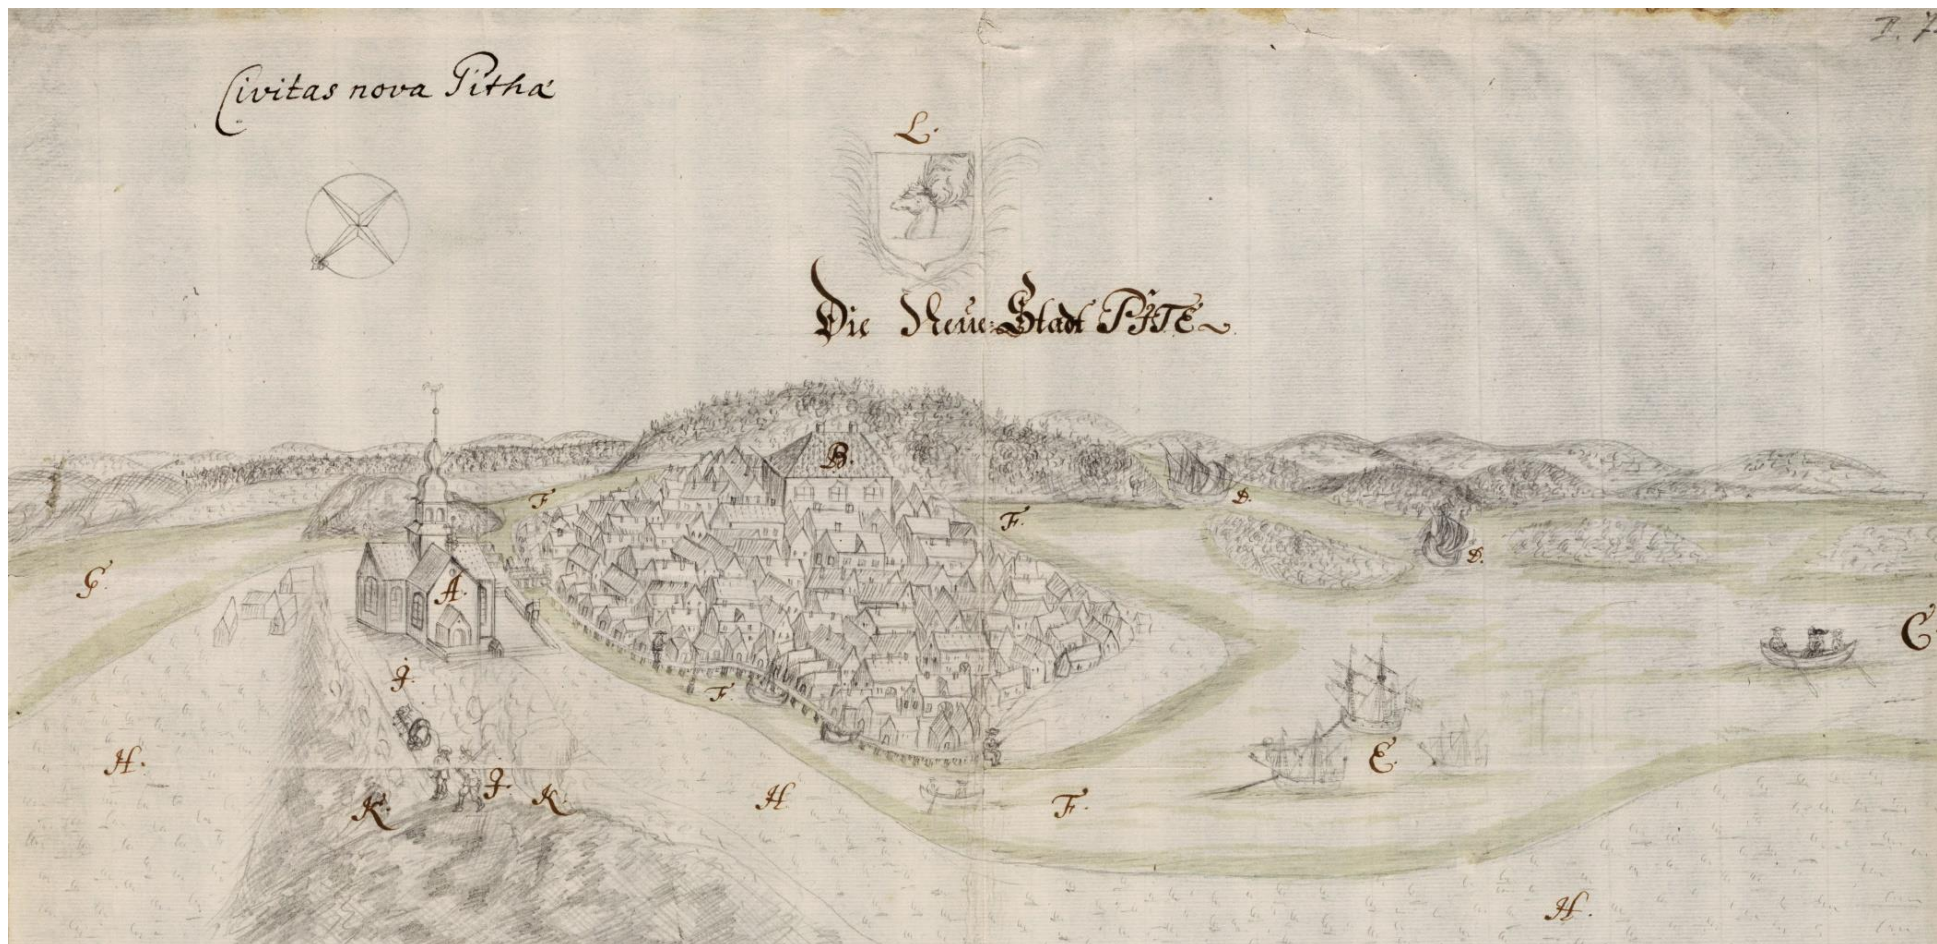 Civitas nova Pitha
L.
Die Neüe Stadt PITE
B.
F
F.
D.
D.
G.
A.
C
J.
F.
E.
H.
K.
J.
K.
H
F.
H.